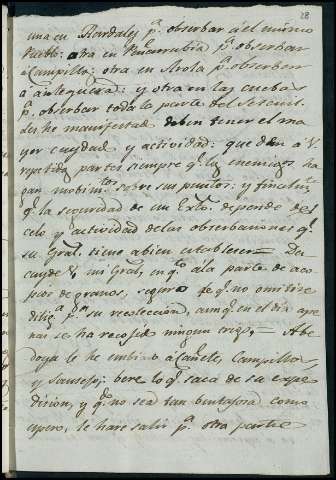 28
una en Ardales p.ª observar á el mismo
Pueblo: otra en Peñarrubia p.ª observar
a Campillos: otra en Arola p.ª observar
á Antequera: y otra en las cuebas
p.ª observar toda la parte del
les he manifestad. deben tener el ma
yor cuydad y actividad: que den á V.
repetidos partes siempre q.e los enemigos ha
gan mobim.tos sobre sus puntos: y finalm.te
q.e la seguridad de un Exto. depende del
celo y actividad de las observaciones q.e
su Gral. tiene abien establecer =
mi Gral, en q.to á la parte de aco
pios de granos, seguro de q.e no omitire
dilig.a p.a su recoleccion, aunq.e en el dia ape
nas se ha recojido ningun trigo = Abe
doya le he embiado á Cañete, Campillos
y Sausejo; bere lo q.e saca de su espe
dision, y q.e no sea tan bentajosa como
espero, le hare salir p.ª otra parte